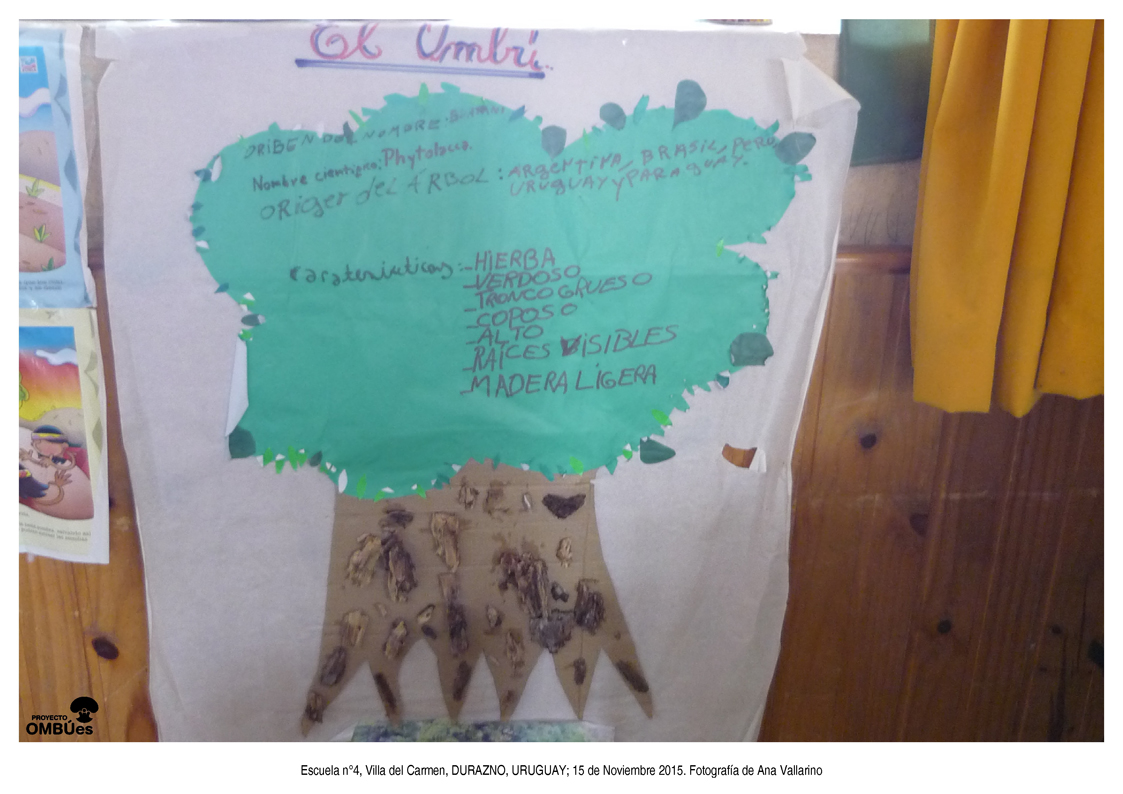 El Umbú.
ORIGEN DEL NOMBRE
Nombre cientifico: Phytolacca.
ORiGen deL ÁRBOL: ARGENTINA, BRASIL, PERÚ
URUGUAY y PARAGUAY.
Caracteristicas: - HIERBA
- VERDOSO
- TRONCO GRUESO
- COPOSO
- ALTO
- RAÍCES VISIBLES
- MADERA LÍGERA
PROYECTO
OMBÚes
Escuela n°4, Villa del Carmen, DURAZNO, URUGUAY; 15 de Noviembre 2015. Fotografía de Ana Vallarino